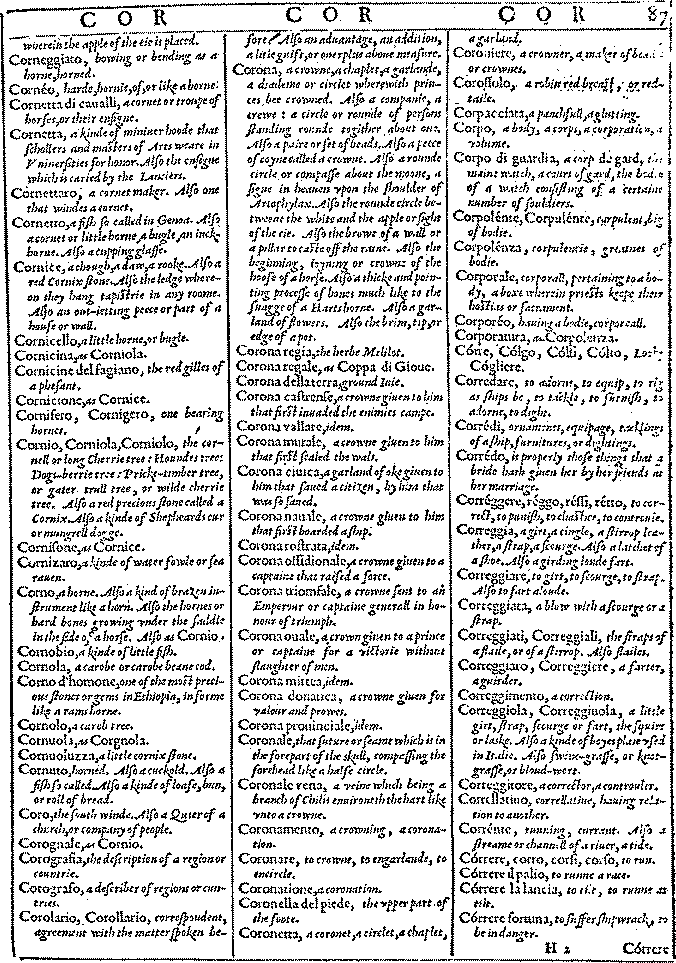 COR
COR
COR 87
wherein the apple of the eie is placed.
Corneggiato, bowing or bending as a
horne, horned.
Cornéo, harde, hornie, of, or like a horne.
Cornetta di caualli, a cornet or troupe of
horses, or their ensigne.
Cornetta, a kinde of miniuer hoode that
schollers and masters of Artes weare in
Vniuersities for honor. Also the ensigne
which is caried by the Lanciers.
Cornettaro, a cornet maker. Also one
that windes a cornet.
Cornetto, a fish so called in Genoa. Also
a cornet or little horne, a bugle, an incke
horne. Also a cupping glasse.
Cornice, a chough, a daw, a rooke. Also a
red Cornix stone. Also the ledge where-
on they hang tapistrie in any roome.
Also an out-ietting peece or part of a
house or wall.
Cornicello, a little horne, or bugle.
Cornicina, as Corniola.
Cornicine del fagiano, the red gilles of
a phesant.
Cornicione, as Cornice.
Cornifero, Cornigero, one bearing
hornes.
Cornio, Corniola, Corniolo, the cor-
nell or long Cherrie tree: Houndes tree:
Dogs-berrie tree: Pricke-timber tree,
or gater trull tree, or wilde cherrie
tree. Also a red precious stone called a
Cornix. Also a kinde of Shepheards cur
or mungrell dogge.
Cornisone, as Cornice.
Cornizaro, a kinde of water fowle or sea
rauen.
Corno, a horne. Also a kind of brazen in-
strument like a horn. Also the hornes or
hard bones growing vnder the saddle
in the side of a horse. Also as Cornio.
Cornobio, a kinde of little fish.
Cornola, a carobe or carobe beane cod.
Corno d'homone, one of the most preci-
ous stones or gems in Ethiopia, in forme
like a rams horne.
Cornolo, a carob tree.
Cornuola, as Corgnola.
Cornuoluzza, a little cornix stone.
Cornuto, horned. Also a cuckold. Also a
fish so called. Also a kinde of loafe, bun,
or roll of bread.
Coro, the south winde. Also a Quier of a
church, or company of people.
Corognale, as Cornio.
Corografia, the description of a region or
countrie.
Corografo, a describer of regions or cun-
tries.
Corolario, Corollario, correspondent,
agreement with the matter spoken be-
fore. Also an aduantage, an addition,
a little guift, or ouerplus aboue measure.
Corona, a crowne, a chaplet, a garlande,
a diademe or circlet wherewith prin-
ces bee crowned. Also a companie, a
crewe: a circle or rounde of persons
standing rounde together about one.
Also a paire or set of beads. Also a peece
of coyne called a crowne. Also a rounde
circle or compasse about the moone, a
signe in heauen vpon the shoulder of
Artophylax. Also the rounde circle be-
tweene the white and the apple or sight
of the eie. Also the browe of a wall or
a pillar to caste off the raine. Also the
beginning, ioyning or crowne of the
hoofe of a horse. Also a thicke and poin-
ting processe of bones much like to the
snagge of a Hartshorne. Also a gar-
land of flowers. Also the brim, tip, or
edge of a pot.
Corona regia, the herbe Melilot.
Corona regale, as Coppa di Gioue.
Corona della terra, ground Iuie.
Corona castrense, a crowne giuen to him
that first inuaded the enimies campe.
Corona vallare, idem.
Corona murale, a crowne giuen to him
that first scaled the wals.
Corona ciuica, a garland of oke giuen to
him that saued a citizen, by him that
was so saued.
Corona nauale, a crowne giuen to him
that first boarded a ship.
Corona rostrata, idem.
Corona ossidionale, a crowne giuen to a
captaine that raised a force.
Corona triomfale, a crowne sent to an
Emperur or captaine generall in ho-
nour of triumph.
Corona ouale, a crown giuen to a prince
or captaine for a victorie without
slaughter of men.
Corona mirtea, idem.
Corona donatica, a crowne giuen for
valour and prowes.
Corona prouinciale, idem.
Coronale, that suture or seame which is in
the forepart of the skull, compassing the
forehead like a halfe circle.
Coronale rena, a veine which being a
branch of Chilis enuironeth the hart like
vnto a crowne.
Coronamento, a crowning, a corona-
tion.
Coronare, to crowne, to engarlande, to
encircle.
Coronatione, a coronation.
Coronella del piede, the vpper part of
the foote.
Coronetta, a coronet, a circlet, a chaplet,
a garland.
Coroniere, a crowner, a maker of beades
or crownes.
Corossolo, a robin red breast, or red-
taile.
Corpacciata, a panchfull, a glutting.
Corpo, a body, a corps, a corporation, a
volume.
Corpo di guardia, a corp de gard, the
maine watch, a court of gard, the bodie
of a watch consisting of a certaine
number of souldiers.
Corpolénte, Corpulénte, corpulent, big
of bodie.
Corpolénza, corpulencie, greatnes of
bodie.
Corporale, corporall, pertaining to a bo-
dy, a boxe wherein priests keepe their
hostias or sacrament.
Corporéo, hauing a bodie, corporeall.
Corporatura, as Corpolenza.
Córre, Cólgo, Cólsi, Cólto, Looke
Cógliere.
Corredare, to adorne, to equip, to rig
as ships be, to tackle, to furnish, to
adorne, to dight.
Corrédi, ornaments, equipage, tacklings
of a ship, furnitures, or dightings.
Corrédo, is properly those things that a
bride hath giuen her by her friends at
her marriage.
Corréggere, réggo, réssi, rétto, to cor-
rect, to punish, to chastise, to controule.
Correggia, a girt, a cingle, a stirrop lea-
ther, a strap, a scourge. Also a latchet of
a shoe. Also a girding loude fart.
Correggiare, to girt, to scourge, to strap.
Also to fart aloude.
Correggiata, a blow with a scourge or a
strap.
Correggiati, Correggiali, the straps of
a flaile, or of a stirrop. Also flailes.
Correggiaro, Correggiere, a farter,
a guirder.
Correggimento, a correction.
Correggiola, Correggiuola, a little
girt, strap, scourge or fart, the squirt
or laske. Also a kinde of boyes plaie vsed
in Italie. Also swine-grasse, or knot-
grasse, or bloud-wort.
Correggitore, a corrector, a controuler.
Correllatino, correllatiue, hauing rela-
tion to another.
Corrénte, running, current. Also a
streame or channell of a riuer, a tide.
Córrere, corro, corsi, corso, to run.
Córrere il palio, to runne a race.
Córrere la lancia, to tilt, to runne at
tilt.
Córrere fortuna, to suffer shipwrack, to
be in danger.
H 2 Córrere